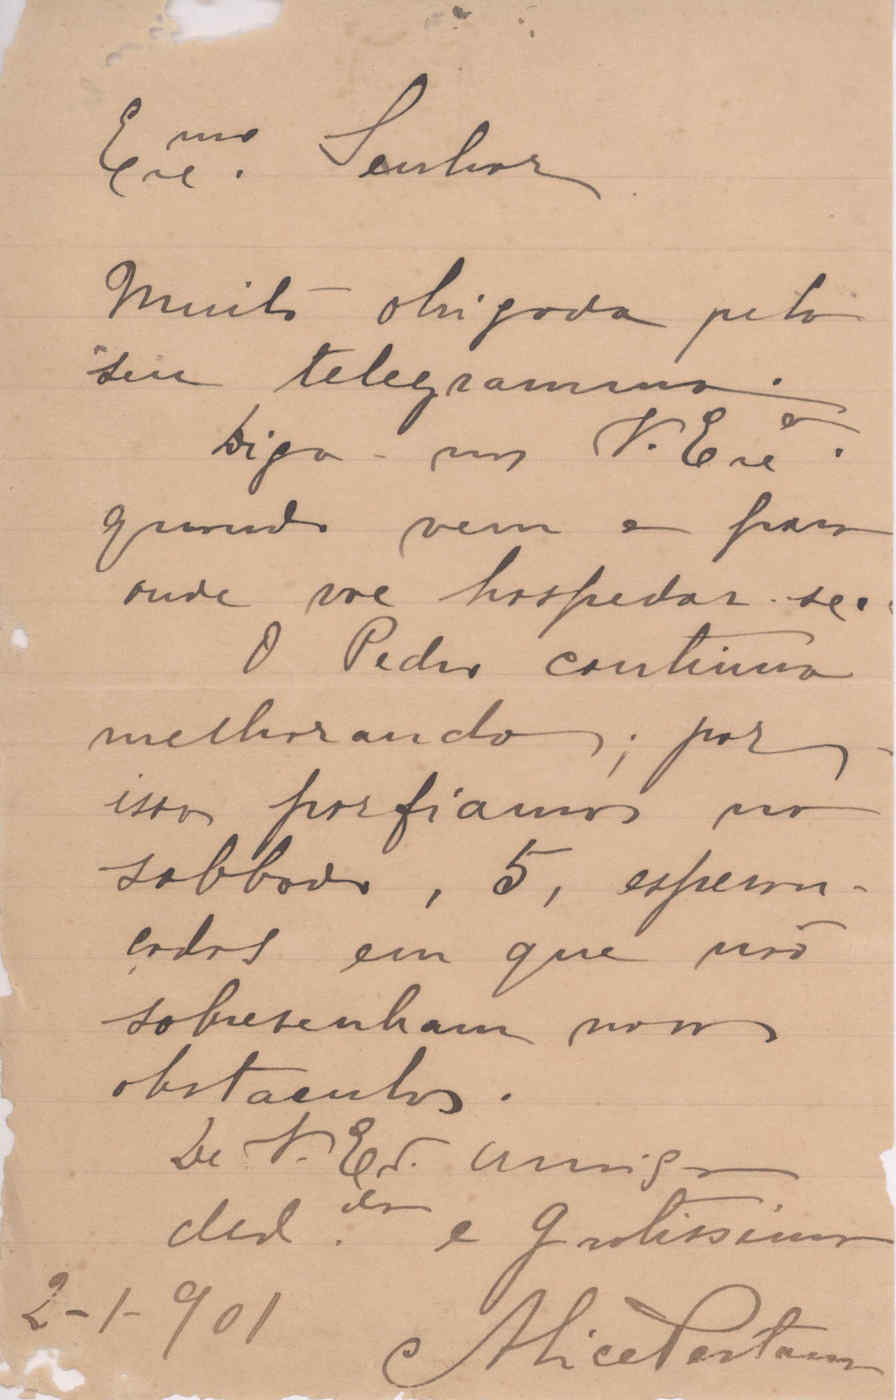 Exmo. Senhor
Muito obrigada pelo
seu telegramma.
Diga-nos V. Exa.
quando vem e para
onde vae hospedar-se.
O Pedro continua
melhorando; por
isso porfiamos no
sabbado, 5, esperan-
çados em que não
sobrevenham novos
obstaculos.
De V. Ex. amiga
ded. da e gratissima
2-1-901
Alice Pestana